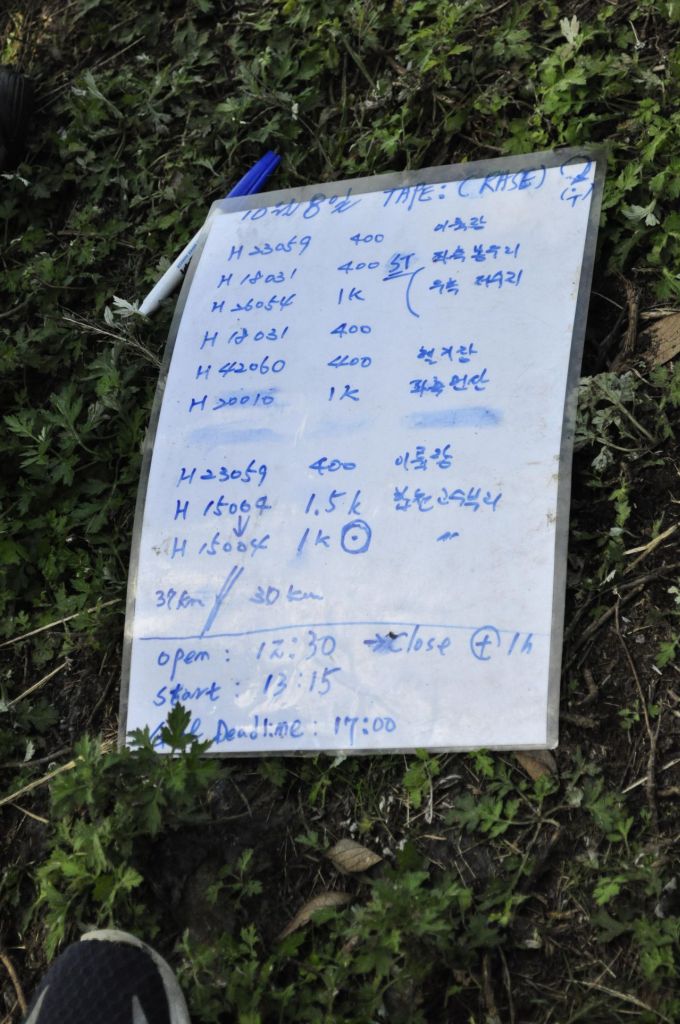 10월 8일 TAPE: (RASE) 2
(수)
H 23059 400 이륙란
H 18031 400 ST 좌측 봉우리
H 26054 1K 우측
H 18031 400
H 42060 400
H 20010 1K 좌측
H 23059 400 이륙장
H 15004 1.5k
↓
H 15004 1k ⊙ 〃
37km // 30km
open : 12:30 → Close ⊕ 1h
start : 13:15
Deadlime : 17:00